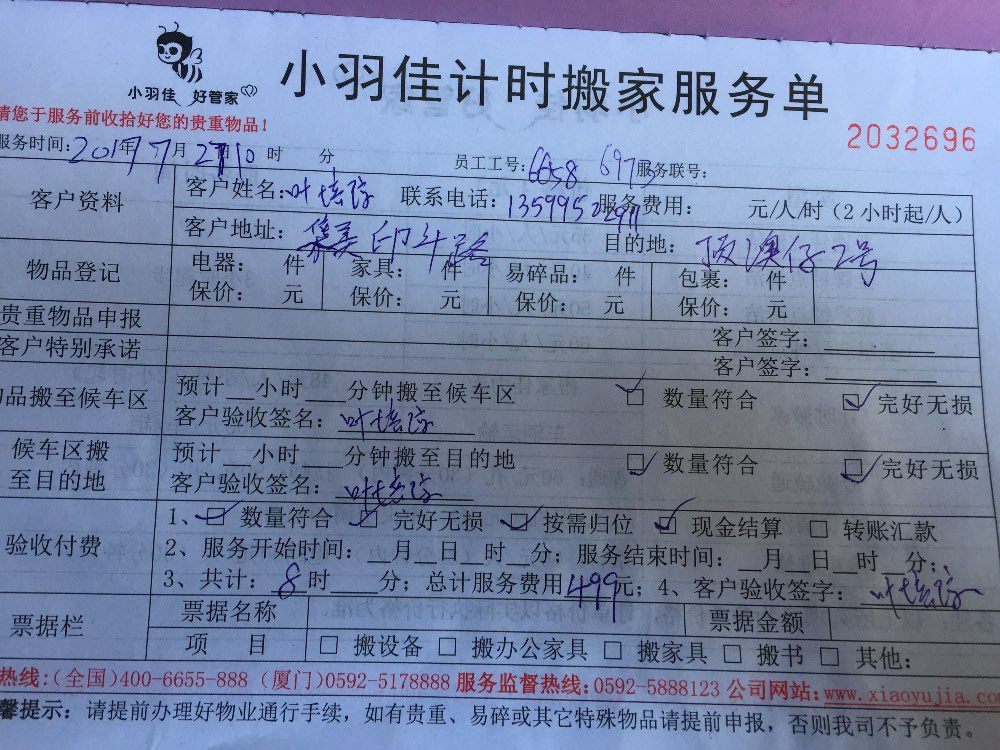 小羽佳 好管家
小羽佳计时搬家服务单
请您于服务前收拾好您的贵重物品!
2032696
服务时间: 2017年7月27日10时 分 员工工号: 6658 6973 服务联号:
客户资料 客户姓名: 叶培 联系电话: 服务费用: 元/人/时(2小时起/人)
客户地址: 集美印斗路 目的地: 顶澳仔2号
物品登记 电器: 件 家具: 件 易碎品: 件 包裹: 件
保价: 元 保价: 元 保价: 元 保价: 元
贵重物品申报 客户签字:
客户特别承诺 客户签字:
物品搬至候车区 预计__小时___分钟搬至候车区 数量符合 完好无损
客户验收签名: 叶培
候车区搬至目的地 预计__小时___分钟搬至目的地 数量符合 完好无损
客户验收签名: 叶培
验收付费 1、 数量符合 完好无损 按需归位 现金结算 转账汇款
2、服务开始时间: __月__日__时__分; 服务结束时间: __月__日__时__分;
3、共计: 8时 分; 总计服务费用499元; 4、客户验收签字: 叶培
票据栏 票据名称 票据金额
项 目 搬设备 搬办公家具 搬家具 搬书 其他:
热线:(全国)400-6655-888 (厦门)0592-5178888 服务监督热线:0592-5888123 公司网站:www.xiaoyujia.co
馨提示: 请提前办理好物业通行手续，如有贵重、易碎或其它特殊物品请提前申报，否则我司不予负责。